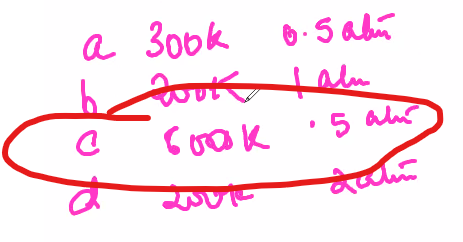 a 300K 0.5 atm
b 200K 1 atm
c 600K .5 atm
d 200K 2 atm